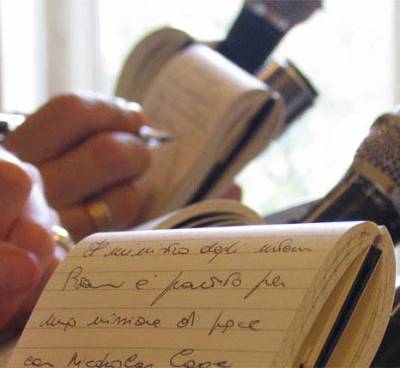 Il ministro degli interni
è partito per
una missione di pace
con Nicholas Cage